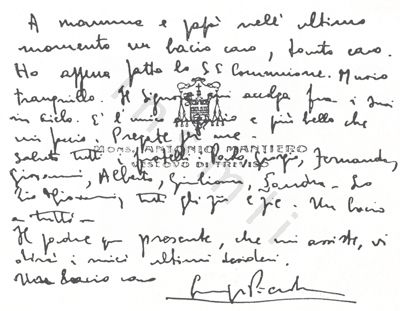 A mamma e papà nell'ultimo
momento un bacio caro, tanto caro.
Ho appena fatto la SS Comunione. Muoio
tranquillo. Il Signore mi accolga fra i suoi
in Cielo. E' l'unico e più bello che
mi faccio. Pregate per me.
MONS. ANTONIO MANTIERO
VESCOVO DI TREVISO
Saluto tutti i fratelli: Paolo, Giorgio, Fernanda,
Giovanni, Alberto, Giuliana, Sandra - Lo
Zio Giovanni, tutti gli zii e zie. Un bacio
a tutti -
Il padre qui presente, che mi assiste, vi
dirà i miei ultimi desideri.
Un bacio caro